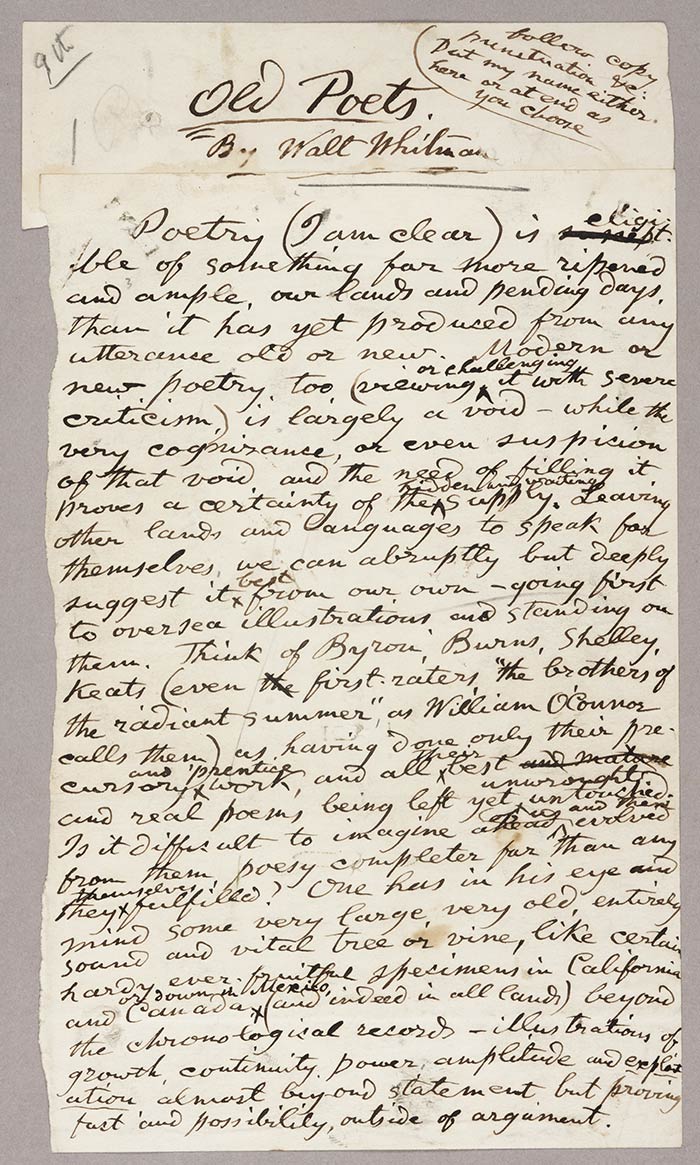 9th
follow copy
punctuation &c:
Put my name either
here or at end as
you choose
Old Poets.
By Walt Whitman
Poetry (I am clear) is eligi-
ble of something far more ripened
and ample, our lands and pending days,
than it has yet produced from any
utterance old or new. Modern or
new poetry, too (viewing or challenging it with severe
criticism,) is largely a void – while the
very cognizance, or even suspicion
of that void and the need of filling it
proves a certainty of the hidden and waiting supply. Leaving
other lands and languages to speak for
themselves, we can abruptly but deeply
suggest it best from our own – going first
to oversea illustrations and standing on
them. Think of Byron, Burns, Shelley,
Keats (even the first-raters, "the brothers of
the radiant summer", as William O'Connor
calls them) as having done only their pre-
cursory and 'prentice work, and all their best and mature
and real poems being left yet unwrought untouched.
Is it difficult to imagine ahead of us and them evolved
from them, poesy completer far than any
they themselves fulfilled? One has in his eye and
mind some very large, very old, entirely
sound and vital tree or vine, like certain
hardy ever-fruitful specimens in California
and Canada, or down in Mexico, (and indeed in all lands) beyond
the chronological records – illustrations of
growth, continuity, power, amplitude and exploit
ation almost beyond statement but proving
fact and possibility, outside of argument.